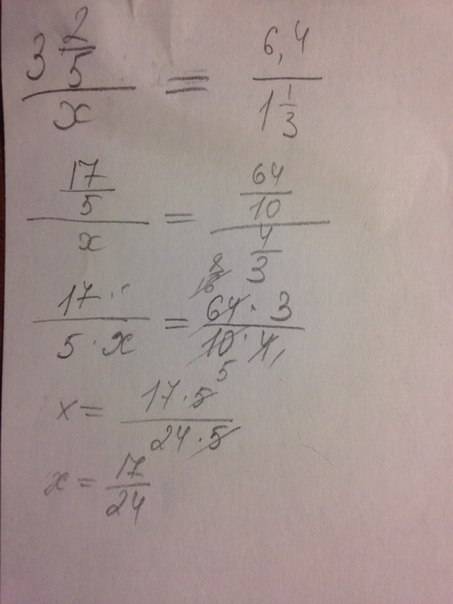 3 2/5 / x = 6,4 / 1 1/3
17/5 / x = 64/10 / 4/3
17 · / 5 · x = 64 · 3 / 10 · 4 16 8 5 1
x = 17 · 5 / 24 · 5
x = 17/24